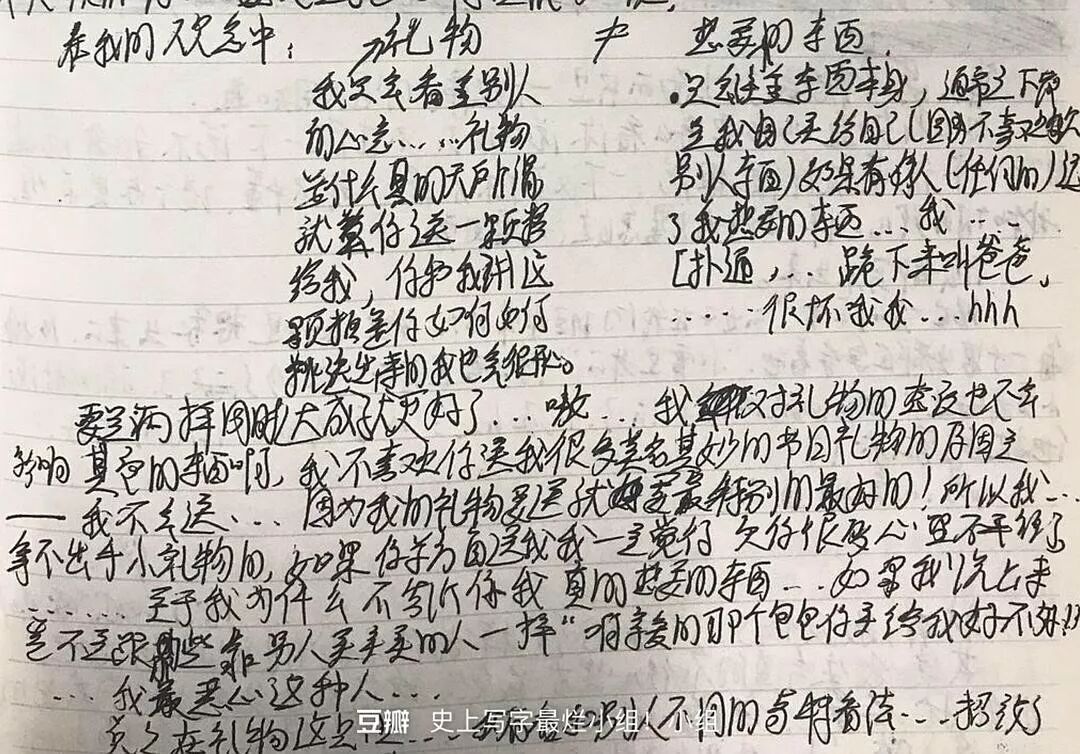 在我的观念中： 礼物 ≠ 想要的东西．
我只会看重别人 ·只注重东西本身，通常之下都
的心意．．．．礼物 是我自己买给自己（因为不喜欢欠
是什么真的无所谓 别人东西）如果有好人（任何的）送
就算你送一颗糖 了我想要的东西．．．我．．．
给我，你和我讲这 ［扑通，．．．跪下来叫爸爸，
颗糖是你如何如何 ．．．．．很坏我我．．．hhh
挑选出来的我也会很开心。
要是两样同时达成就更好了．．．嗷．．．我对礼物的态度也不会
影响 真爱的东西啊，我不喜欢你送我很多莫名其妙的节日礼物的原因是
——我不会送．．．因为我的礼物要送就要最特别的最好的！所以我．．．
拿不出手小礼物的，如果你单方面送我我一定觉得 欠你很多心里不平衡了
．．．．．．至于我为什么不告诉你我 真的想要的东西．．．如果我说出来
岂不是跟那些靠男人买买买的人一样“ 的那个包包你买给我好不好
．．．我最恶心这种人．．．
总之在礼物这 别人不同的奇特看法．．．
豆瓣 史上写字最烂小组！小组